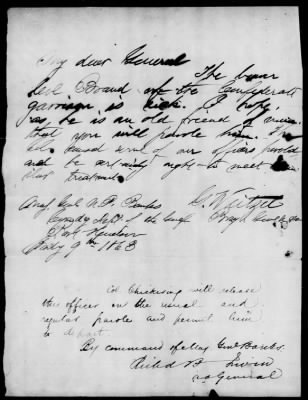 My dear General
The bearer
Col. Brand of the Confederate
garrison is sick. I hope,
as he is an old friend of mine
that you will parole him. He
has some of our officers paroled
and be certainly right to meet
treatment
Maj Genl N. P. Banks
G. Weitzel
Comdg Dept of the Gulf
Brig Genl
Port Hudson
July 9th 1863
Col Chickering will release
this officer on the usual and
regular parole and permit him
to depart
By command of Maj Genl Banks.
Richd B Irwin
a a General